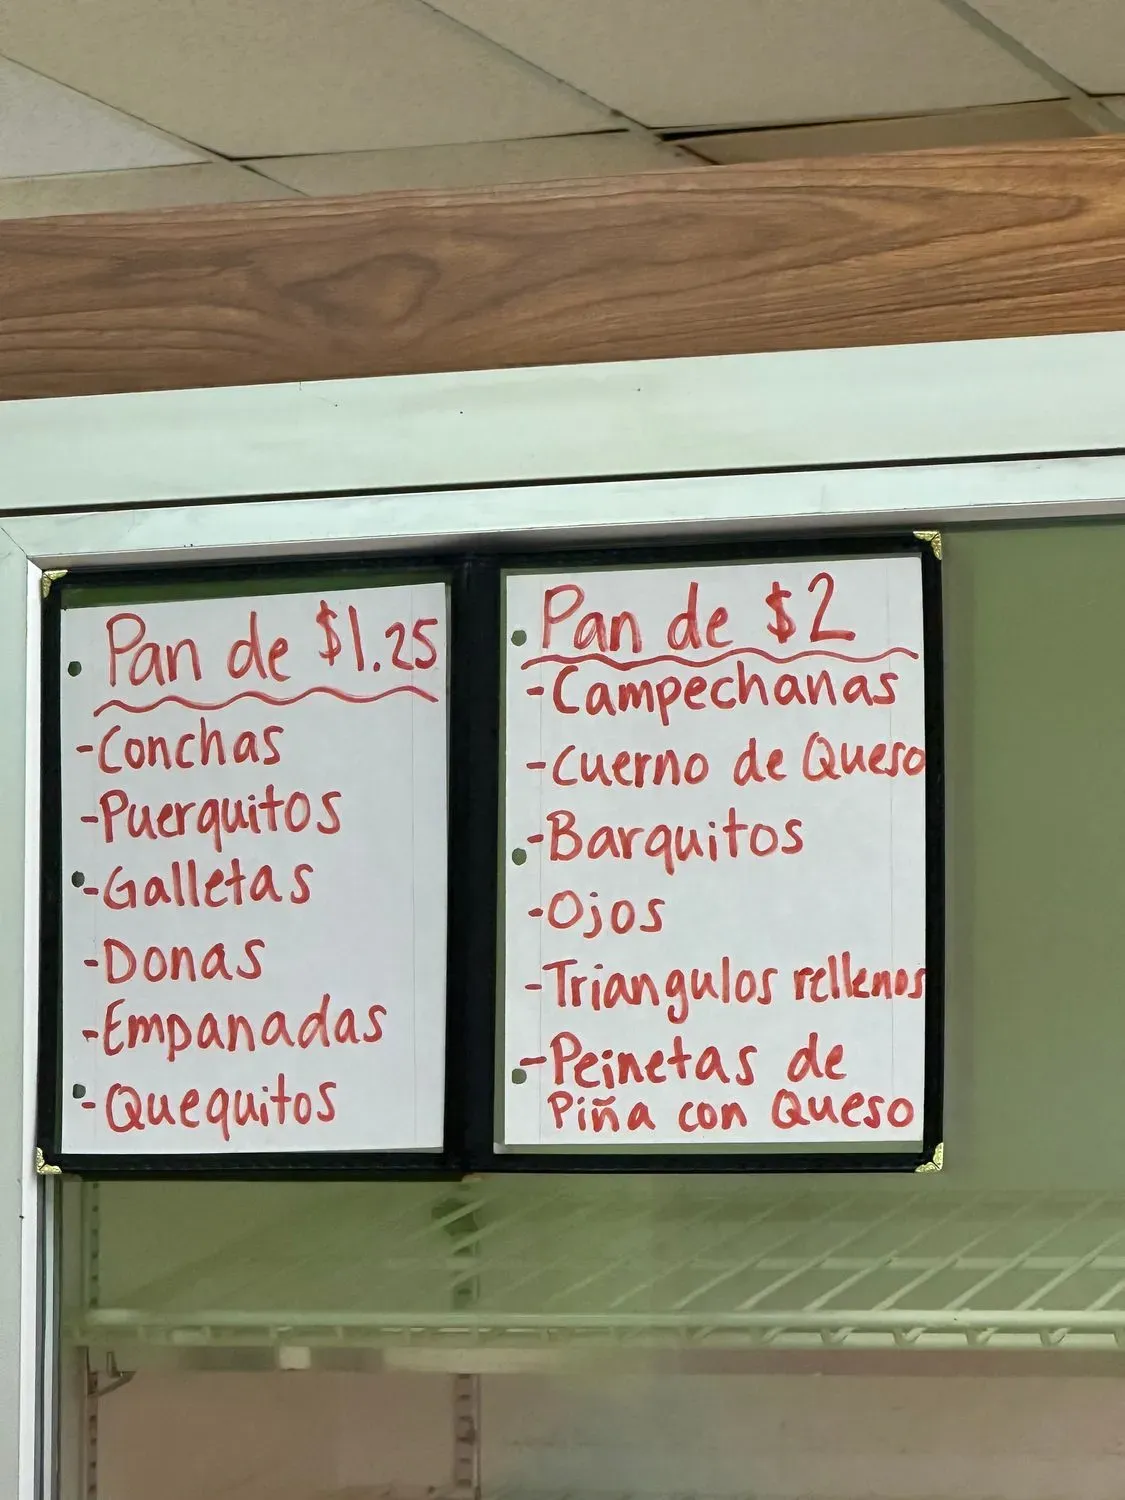 Pan de $1.25
-Conchas
-Puerquitos
-Galletas
-Donas
-Empanadas
-Quequitos
Pan de $2
-Campechanas
-Cuerno de Queso
-Barquitos
-Ojos
-Triangulos rellenos
-Peinetas de
Piña con Queso